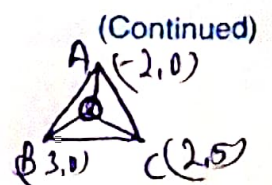 (Continued)
A (-2,0)
B(3,0) C(2,5)